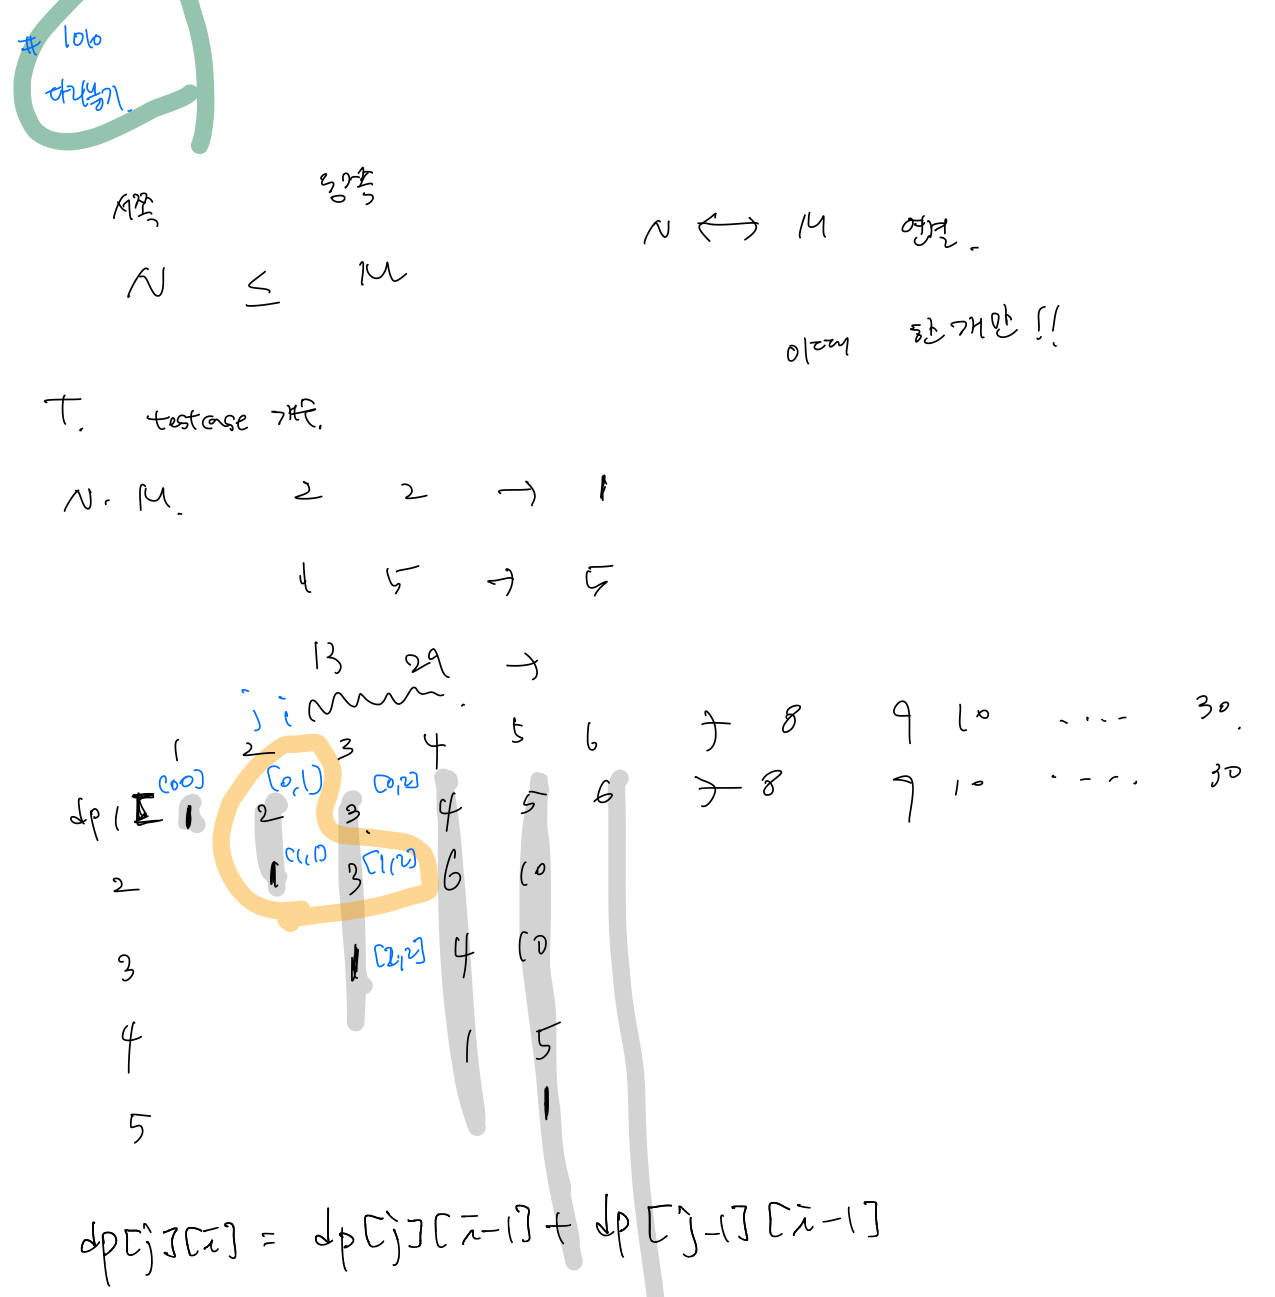 # 1010
다리놓기.
서쪽 동쪽
N ≤ M
N ↔ M 연결.
이때 한개만!!
T. testcase 개수.
N. M. 2 2 → 1
4 5 → 5
13 29 →
j i
1 2 3 4 5 6 7 8 9 10 .... 30.
[0,0] [0,1] [0,2]
dp 1 1 2 3. 4 5 6 7 8 9 10 .... 30
[1,1] [1,2]
2 1 3 6 10
3 1 [2,2] 4 10
4 1 5
5 1
dp[j][i] = dp[j][i-1] + dp[j-1][i-1]